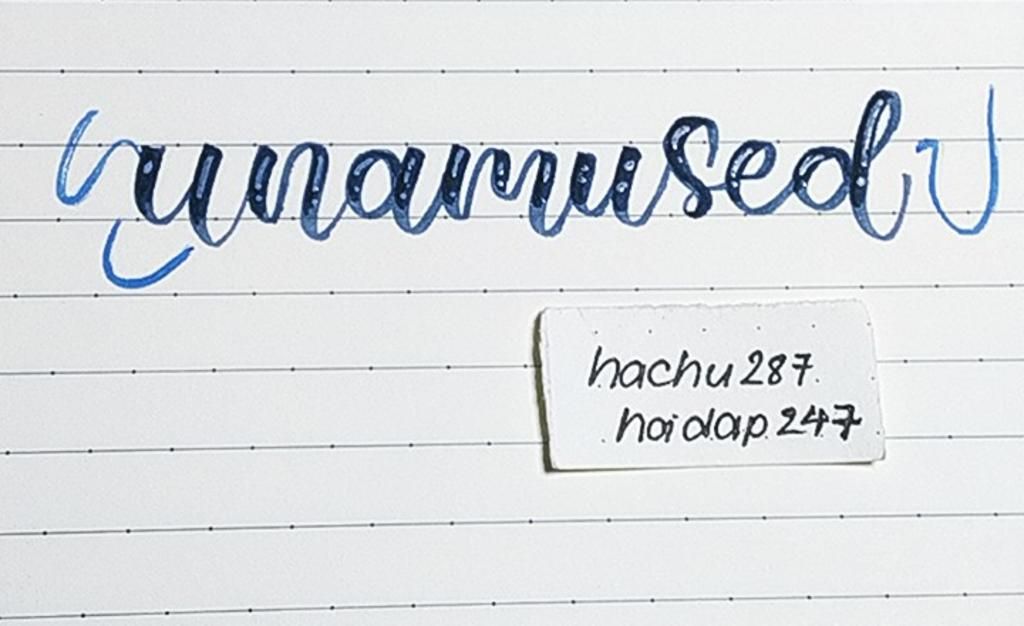 unamused
hachu287
hoidap247